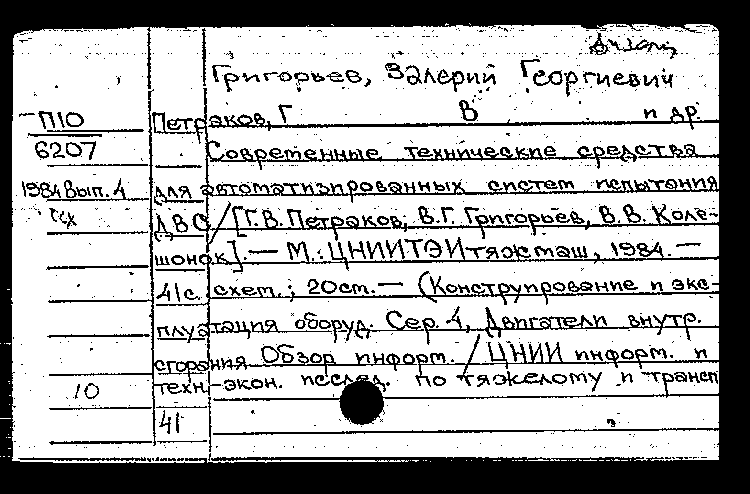 Григорьев, Валерий Георгиевич
П10 Петраков, Г В и др
6207 Современные технические средства
1984 Вып. 4 для автоматизированных систем испытания
ДВС / [Г.В. Петраков, В.Г. Григорьев, В.В. Коле-
шонок]. — М.: ЦНИИТЭИтяжмаш, 1984. —
41с. схем.; 20см. — (Конструирование и экс-
плуатация оборуд. Сер. 4, Двигатели внутр.
сгорания Обзор информ. / ЦНИИ информ. и
10 техн.-экон. исслед. по тяжелому и трансп
41